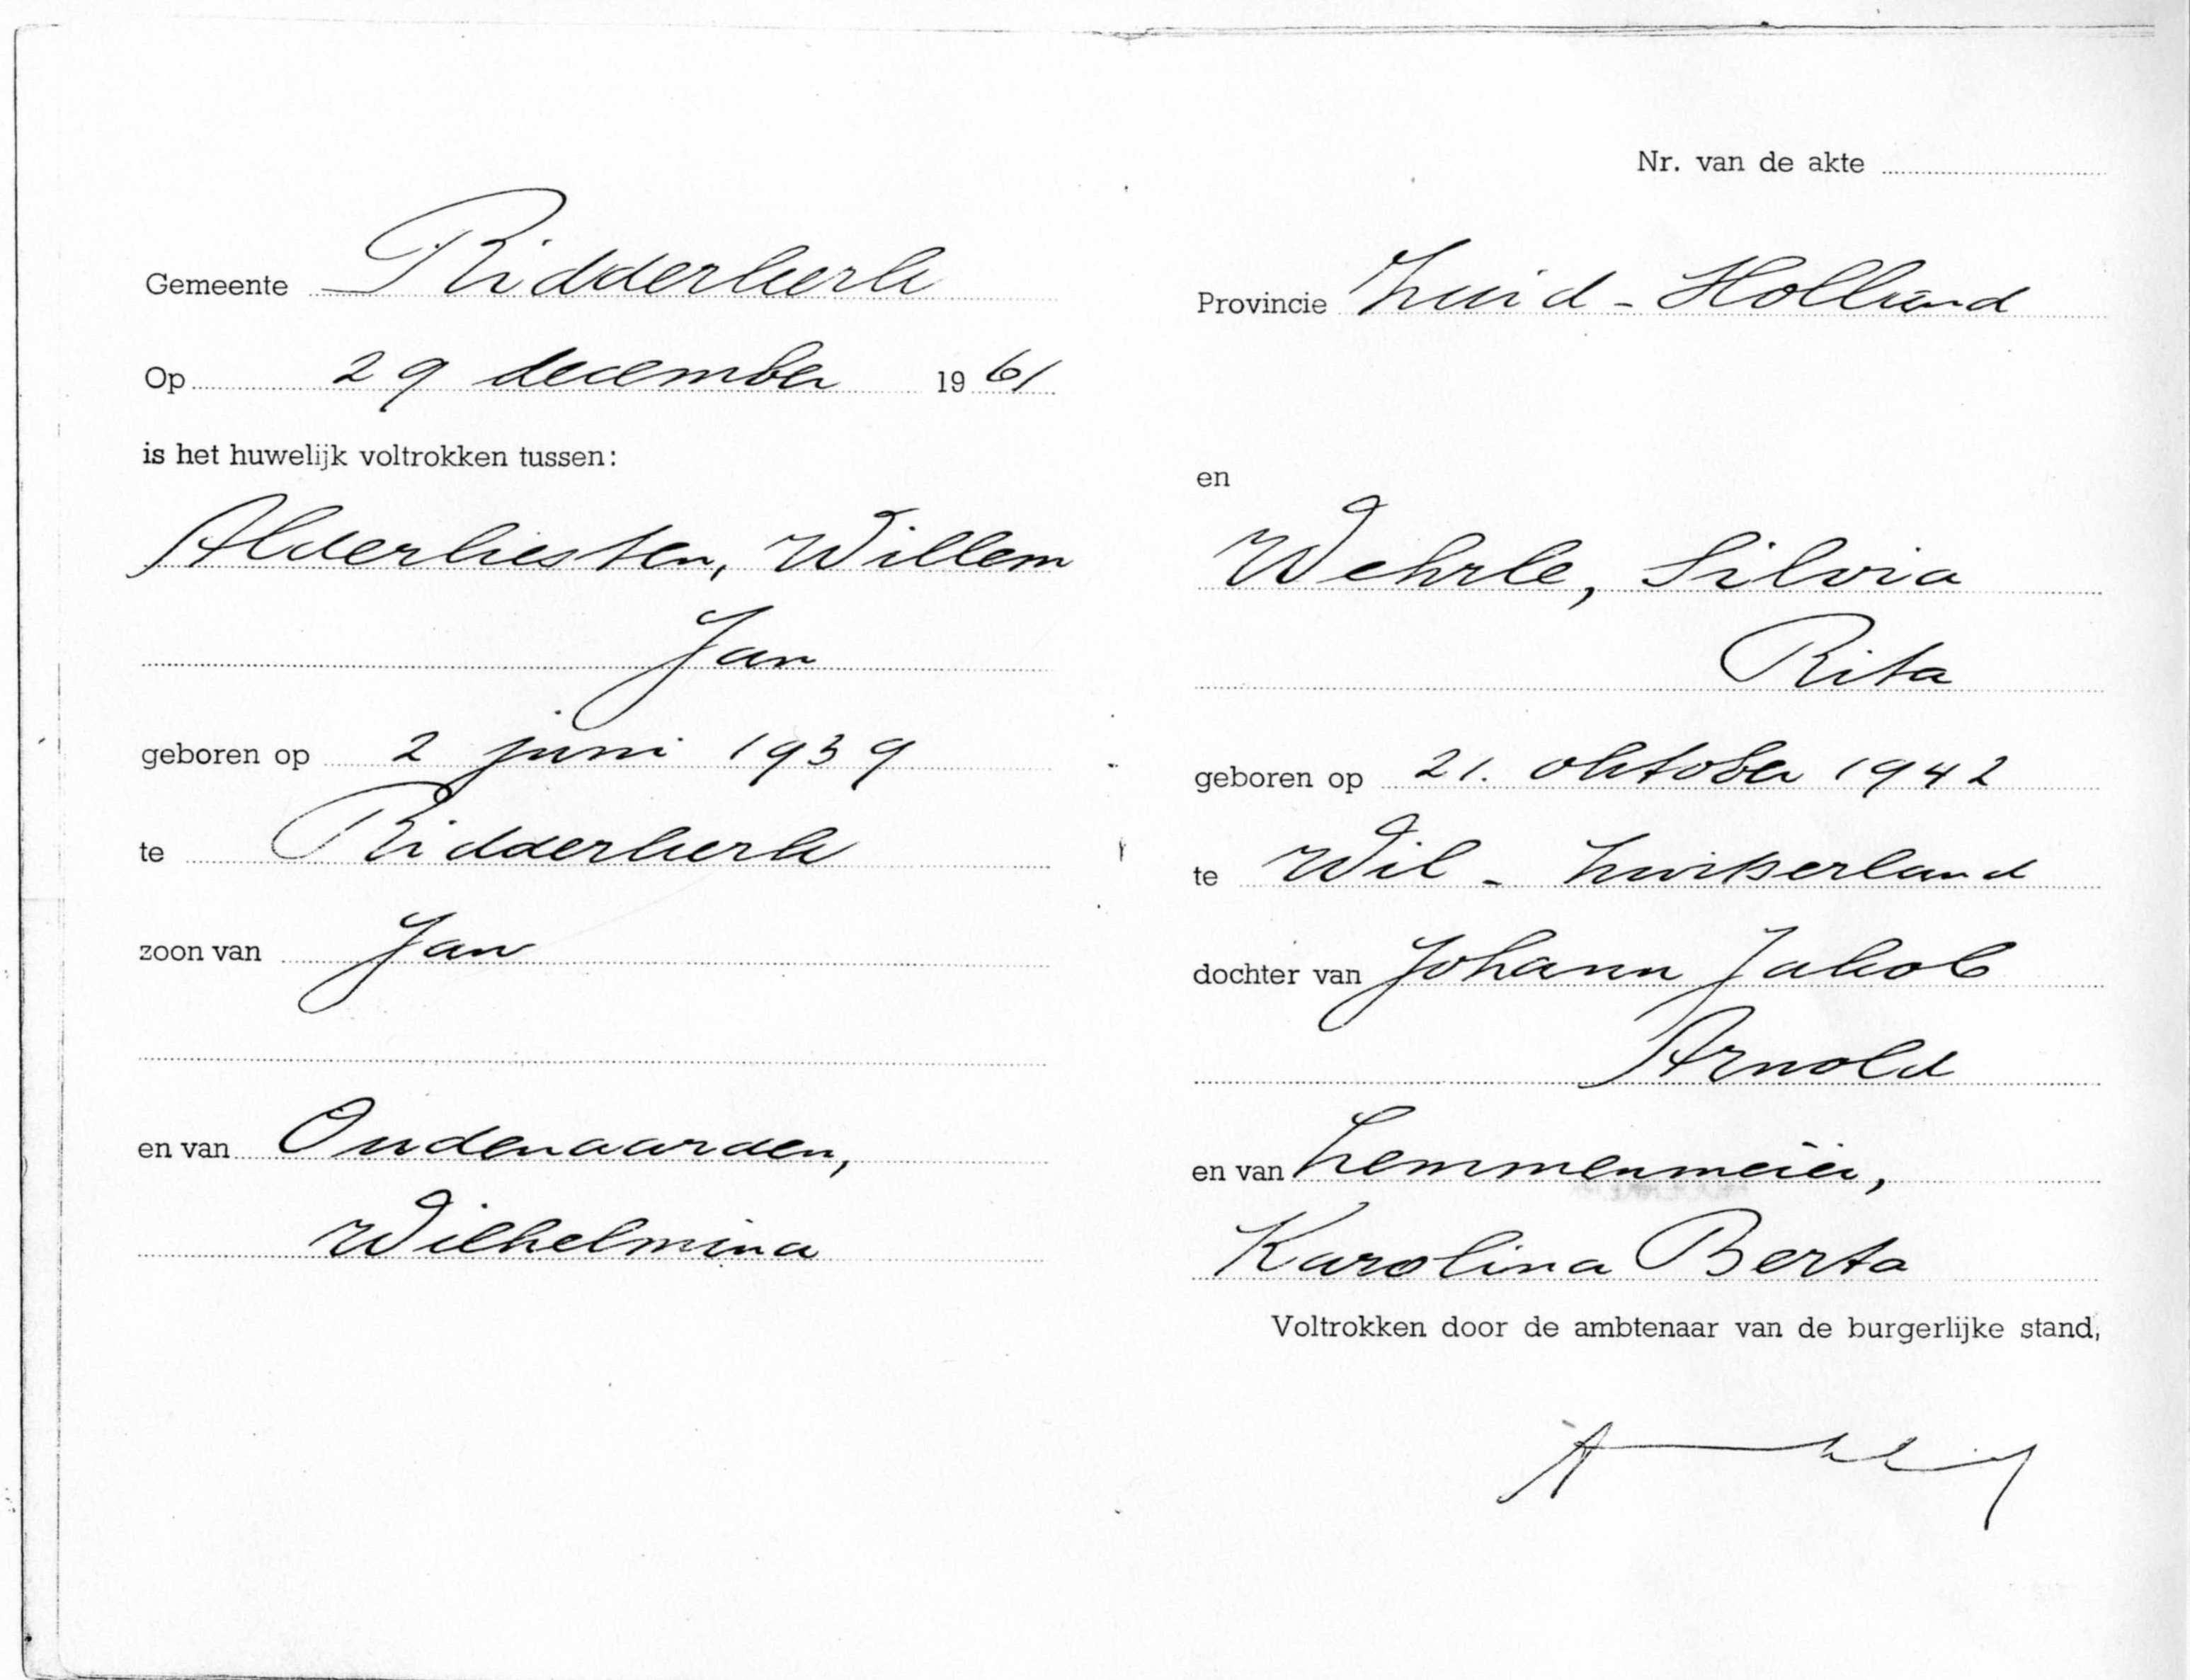 Gemeente Ridderkerk
Op 29 december 1961
is het huwelijk voltrokken tussen:
Alderliesten, Willem
Jan
geboren op 2 juni 1939
te Ridderkerk
zoon van Jan
en van Oudenaarden,
Wilhelmina
Nr. van de akte
Provincie Zuid-Holland
en
Wehrle, Silvia
Rita
geboren op 21. oktober 1942
te Wil - Zwitserland
dochter van Johann Jakob
Arnold
en van Lemmenmeier,
Karolina Berta
Voltrokken door de ambtenaar van de burgerlijke stand,